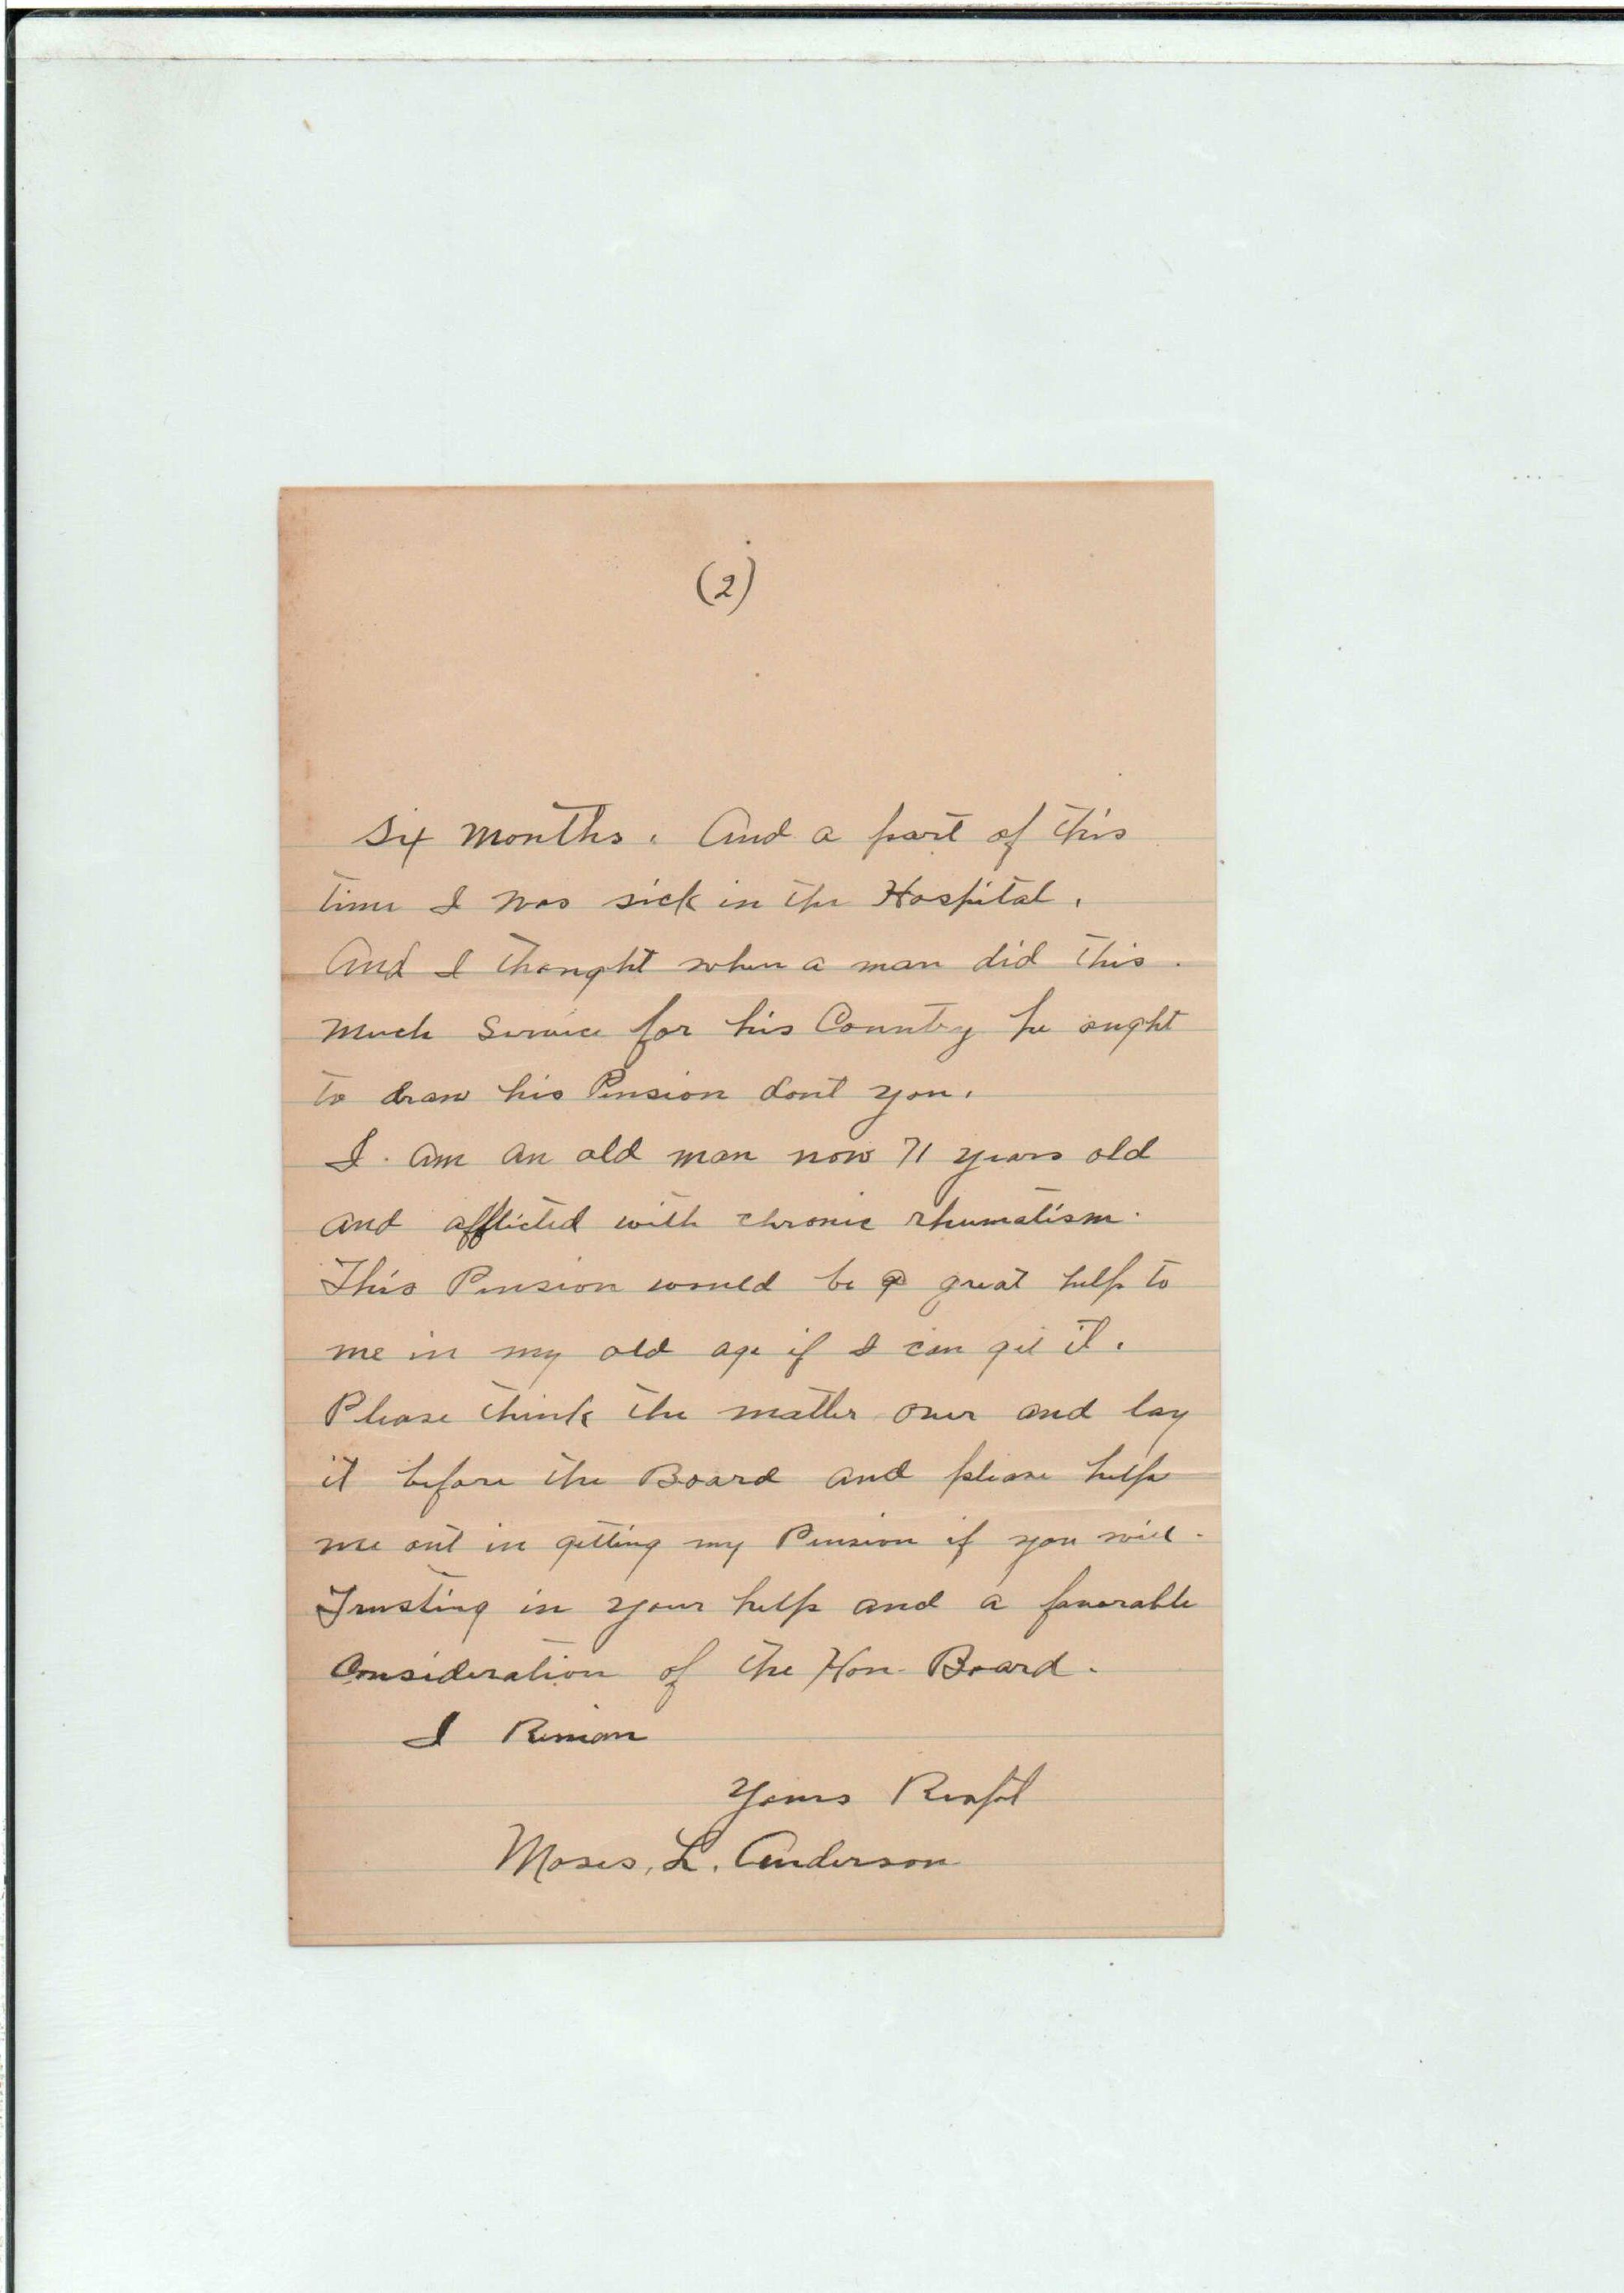 (2)
Six months. And a part of this
time I was sick in the Hospital.
And I thought when a man did this
much service for his Country he ought
to draw his Pension dont you.
I am an old man now 71 years old
and afflicted with chronic rhumatism.
This Pension would be a great help to
me in my old age if I can get it.
Please think the matter over and lay
it before the Board and please help
me out in getting my Pension if you will.
Trusting in your help and a favorable
Consideration of the Hon. Board.
I Remain
Yours Respt
Moses, L. Anderson